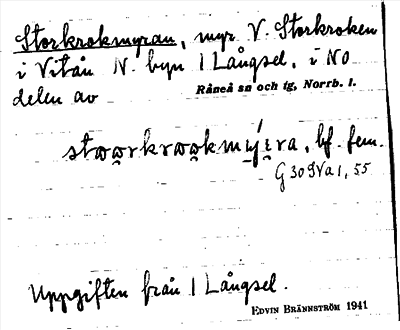 Storkrokmyran, myr V. Storkroken
i Vitån N. byn 1 Långsel, i NO
delen av Råneå sn och tg, Norrb. l.
stωω̯rkrωω̯kmýi̯ra, bf. fem.
G 30 SVa1, 55
Uppgiften från 1 Långsel.
EDVIN BRÄNNSTRÖM 1941